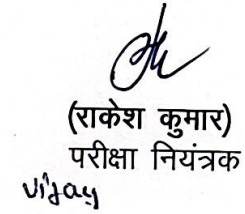 (राकेश कुमार)
परीक्षा नियंत्रक
vijay